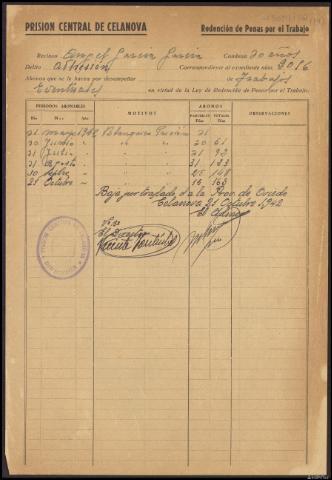 PRISION CENTRAL DE CELANOVA
Redención de Penas por el Trabajo
Recluso Angel García García Condena 20 años
Delito Adhesión Correspondiente al expediente núm. 3016
Abonos que se le hacen por desempeñar Trabajos
Eventuales en virtud de la Ley de Redención de Penas por el Trabajo.
PERIODOS ABONABLES MOTIVOS ABONOS OBSERVACIONES
Día Mes Año PARCIALES Días TOTALES Días
31 mayo 1942 Blanqueo Prisión 21
30 Junio " " " 20 61
31 Julio " 31 92
31 Agosto " 31 123
30 Septbre " 25 148
21 Octubre " 16 163
Baja por traslado a la Prov. de Oviedo
Celanova 21 Octubre 1942
Vº Bº
El Director